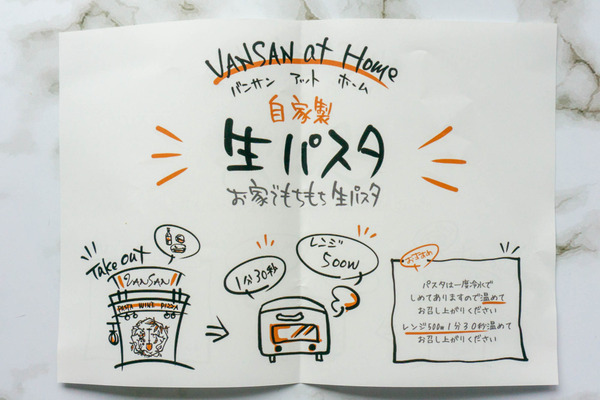 VANSAN at Home
バンサン アット ホーム
自家製
生パスタ
お家でもちもち生パスタ
Take out
VANSAN
PASTA WINE PIZZA
1分30秒
レンジ
500W
おすすめ
パスタは一度冷水で
しめてありますので温めて
お召し上がりください
レンジ500W1分30秒温めて
お召し上がりください